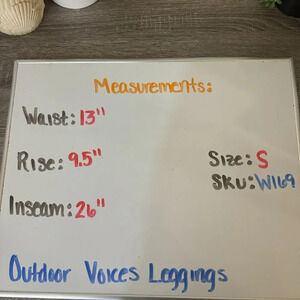 Measurements:
Waist: 13"
Rise: 9.5"
Size: S
SKU: W169
Inseam: 26"
Outdoor Voices Leggings